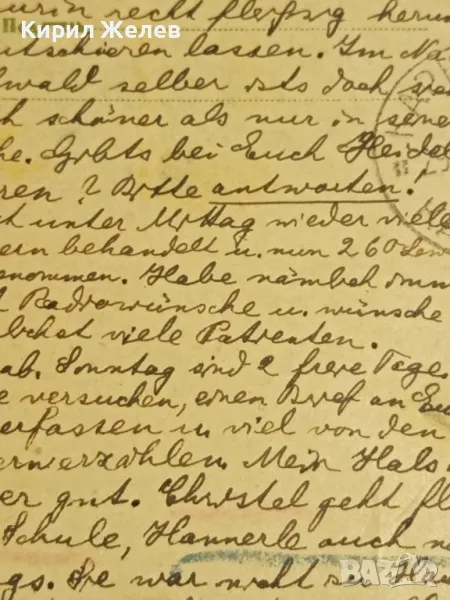 Кирил Желев
darin recht fleißig herum
kutschieren lassen. Im Na
wald selber ists doch
h schöner als nur in seine
he. Gibts bei Euch Heidel
ren? Bitte antworten.
h unter Mittag wieder viele
ern behandelt u. nun 260 Lew
enommen. Habe nämlich imm
Radiowünsche u. wünsche
lichst viele Patienten.
ab. Sonntag sind 2 freie Tage.
e versuchen, einen Brief an Eu
erfassen u. viel von den
ernerzählen. Mein Hals
er gut. Christel geht fl
Schule, Hannerle auch n
gs. Sie war nicht
bazar